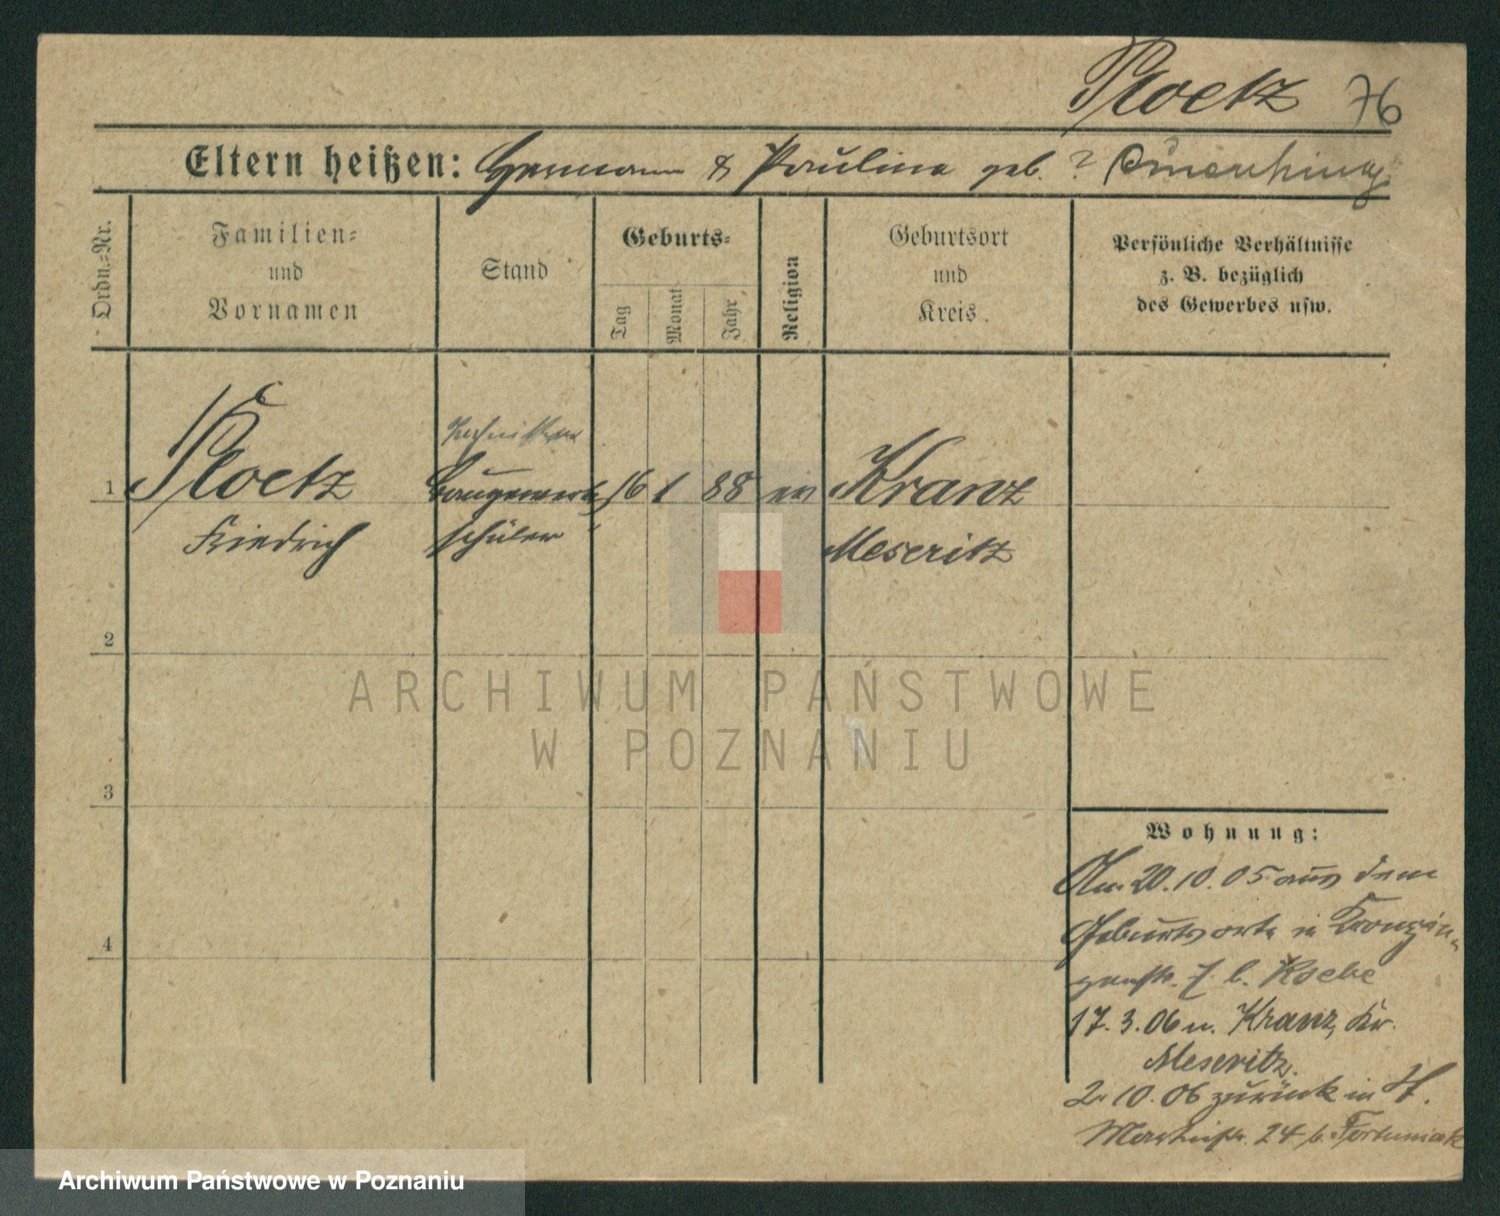 Ploetz 76
Eltern heißen: Hermann & Paulina geb. ?
Ordn.-Nr.
Familien-
und
Vornamen
Stand
Geburts-
Tag
Monat
Jahr
Religion
Geburtsort
und
Kreis.
Persönliche Verhältnisse
z. B. bezüglich
des Gewerbes usw.
Techniker
1 Ploetz Baugewerks 16 1 88 ev Kranz
Friedrich schüler Meseritz
2
3
4
Wohnung:
Am 20.10.05 aus dem
Geburtsorte in
7 b. Roebe
17. 3. 06 n. Kranz, Kr.
Meseritz.
2. 10. 06 zurück in St.
Martinstr. 24 b.
ARCHIWUM PAŃSTWOWE
W POZNANIU
Archiwum Państwowe w Poznaniu